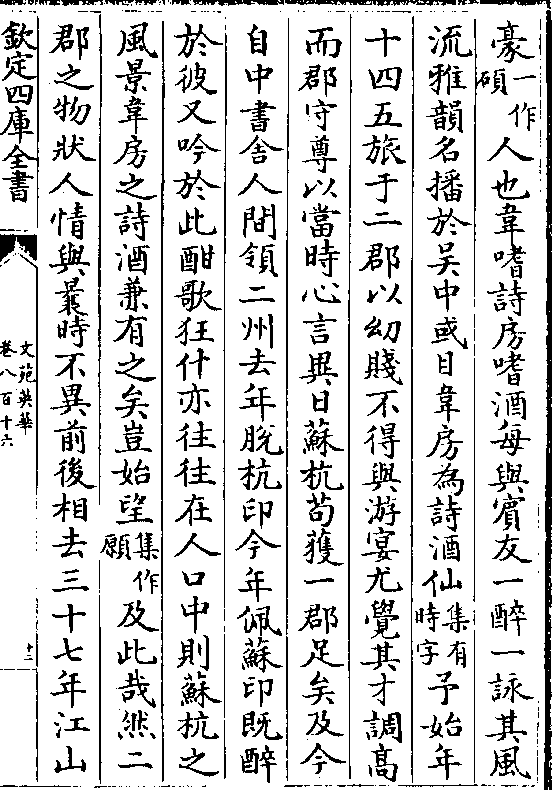 豪一作碩人也韋嗜詩房嗜酒每與賔友一醉一詠其風
流雅韻名播於吳中或目韋房為詩酒仙集有時字予始年
十四五旅于二郡以幼賤不得與游宴尤覺其才調高
而郡守尊以當時心言異日蘇杭茍獲一郡足矣及今
自中書舍人間領二州去年脫杭印今年佩蘇印既醉
於彼又吟於此酣歌狂什亦往往在人口中則蘇杭之
風景韋房之詩酒兼有之矣豈始望集作願及此哉然二
郡之物狀人情與曩時不異前後相去三十七年江山
欽定四庫全書
文苑英華
卷八百十六
十二